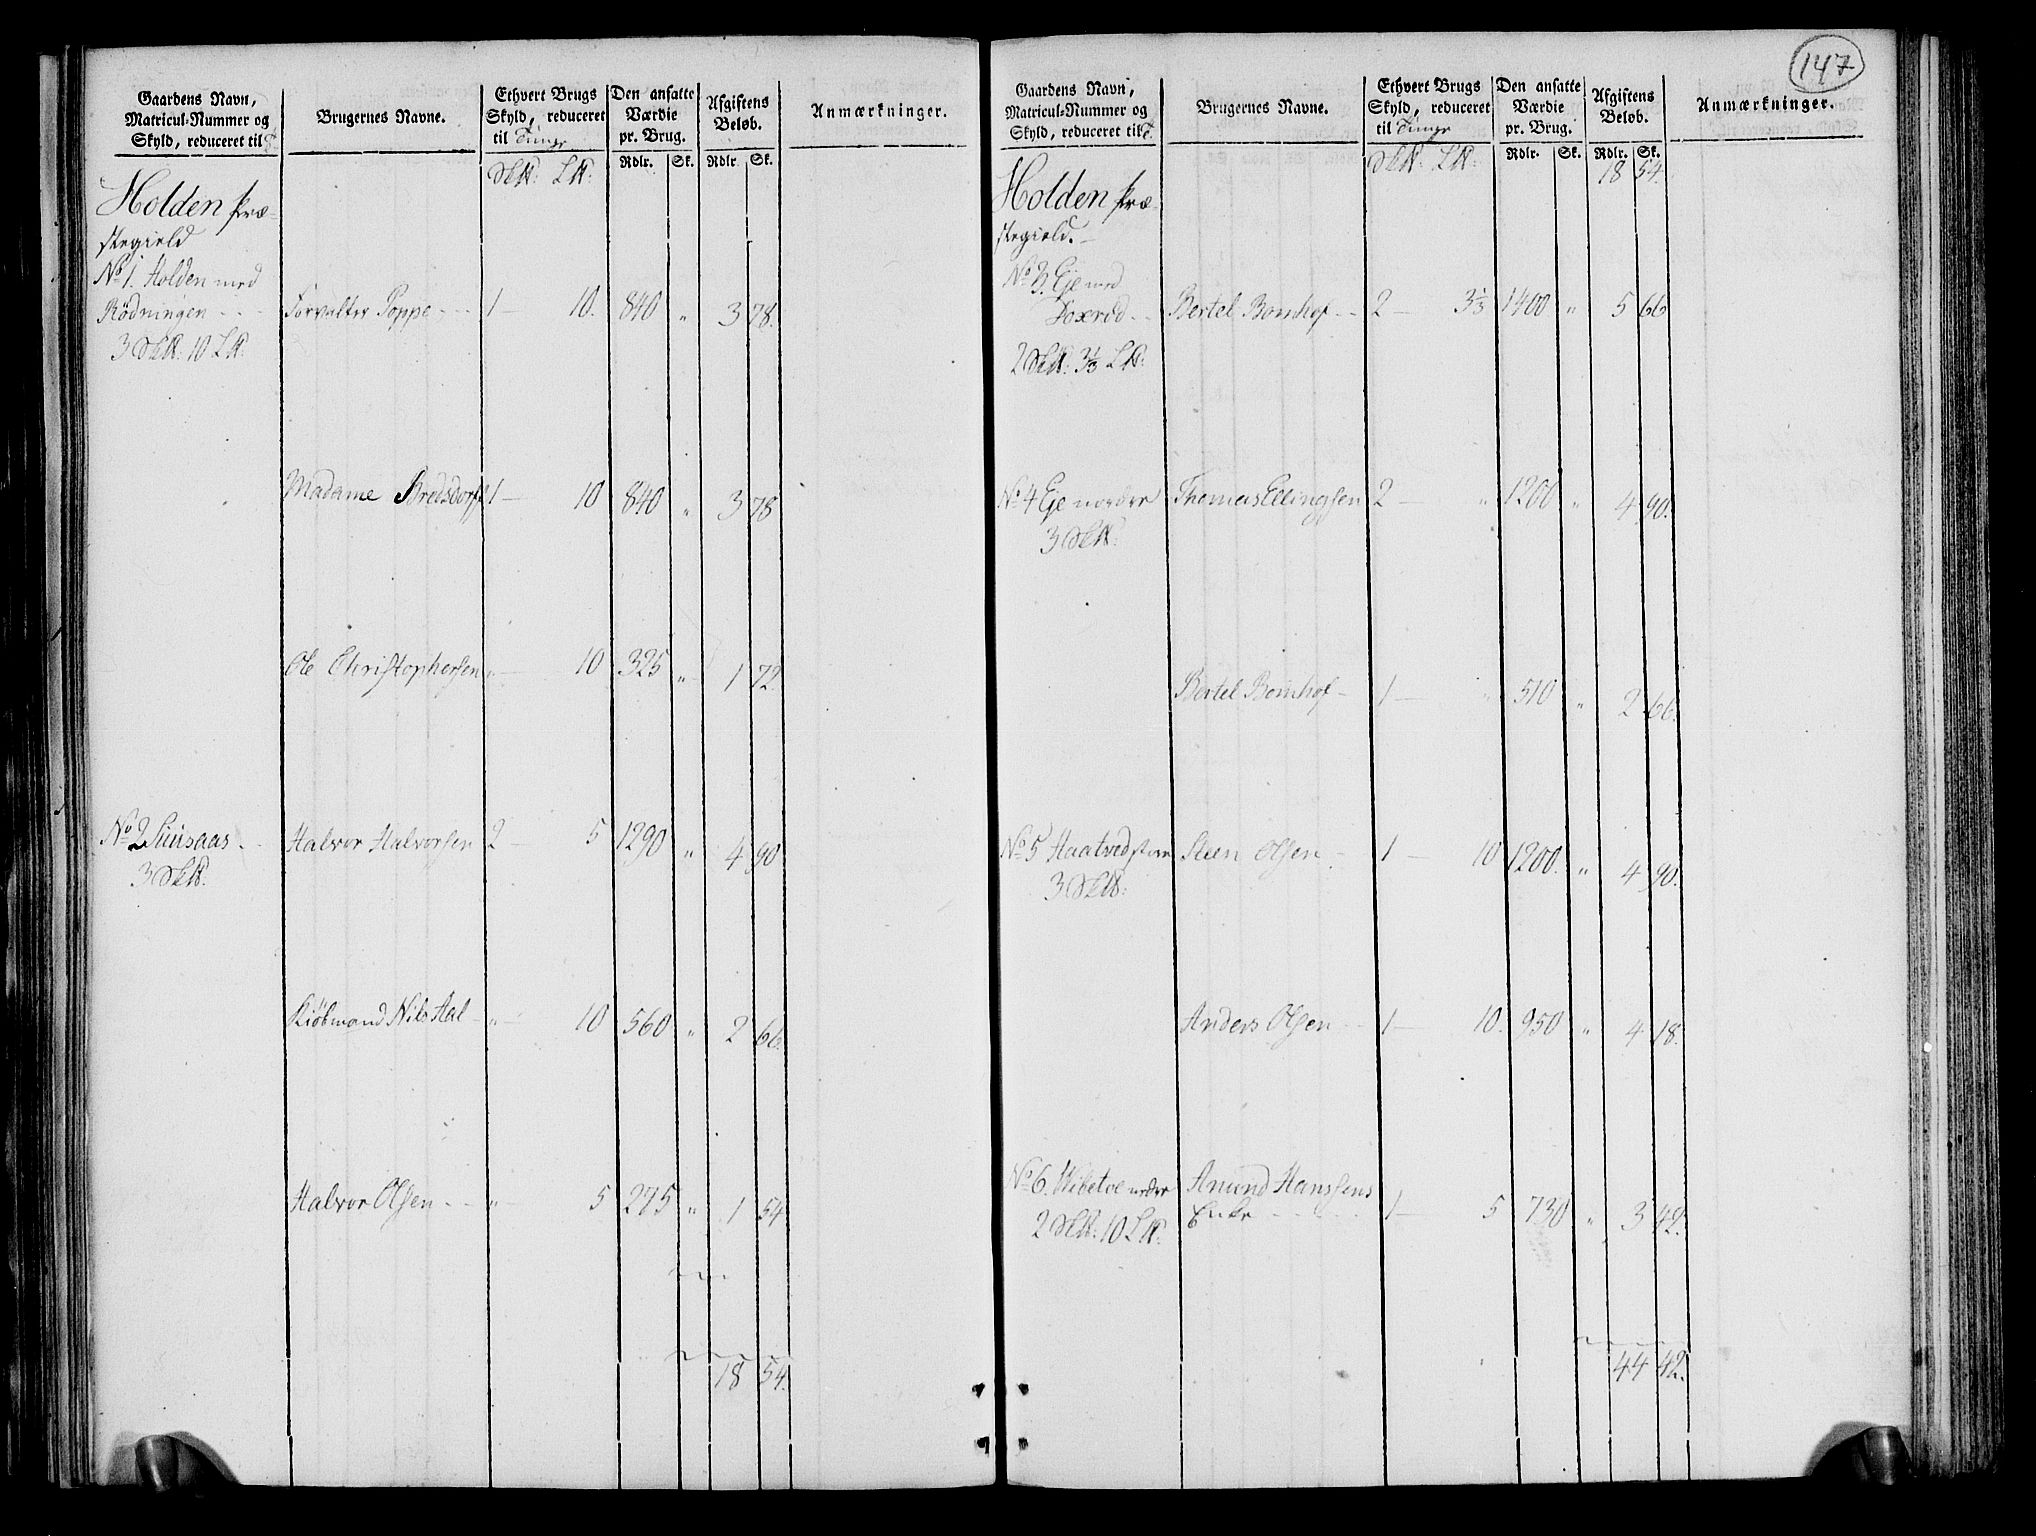 147
Gaardens Navn,
Matricul-Nummer og
Skyld, reduceret til
Brugernes Navne.
Ethvert Brugs
Skyld, reduceret
til Tunge
Den ansatte
Værdie
pr. Brug.
Afgiftens
Beløb.
Anmærkninger.
Rdlr. Sk. Rdlr. Sk.
Holden Præ-
stegield
No 1. Holden med
Rödningen - - Forvalter Poppe - - - 1 - 10. 840 " 3 78.
Madame Bredsdorff 1 - 10 840 " 3 78
Ole Christophersen " - 10 325 " 1 72.
No 2 Suusaas - Halvor Halvorsen 2 - 5 1290 " 4 90
Kiöbmand Nils Aal - " - 10 560 " 2 66.
Halvor Olsen - - " - 5 275 " 1 54
18 54.
Gaardens Navn,
Matricul-Nummer og
Skyld, reduceret til
Brugernes Navne.
Ethvert Brugs
Skyld, reduceret
til Tunge
Den ansatte
Værdie
pr. Brug.
Afgiftens
Beløb.
Anmærkninger.
Rdlr. Sk. Rdlr. Sk.
18 54.
Holden Præ-
stegield. -
No 3. Eje med
Doxrød - - Bertel Bomhof - - 2 - 3⅓ 1400 " 5 66
No 4 Eje nordre Thomas Ellingsen 2 - " 1200 " 4 90.
Bertel Bomhof - 1 - " 510 " 2 66.
No 5 Haatvedt store Steen Olsen - 1 - 10 1200. " 4 90.
Anders Olsen - - 1 - 10. 950 " 4 18.
No 6. Wibetoe nedre Amund Hanssens
Enke - - - - 1 - 5 730 " 3 42.
44 42.